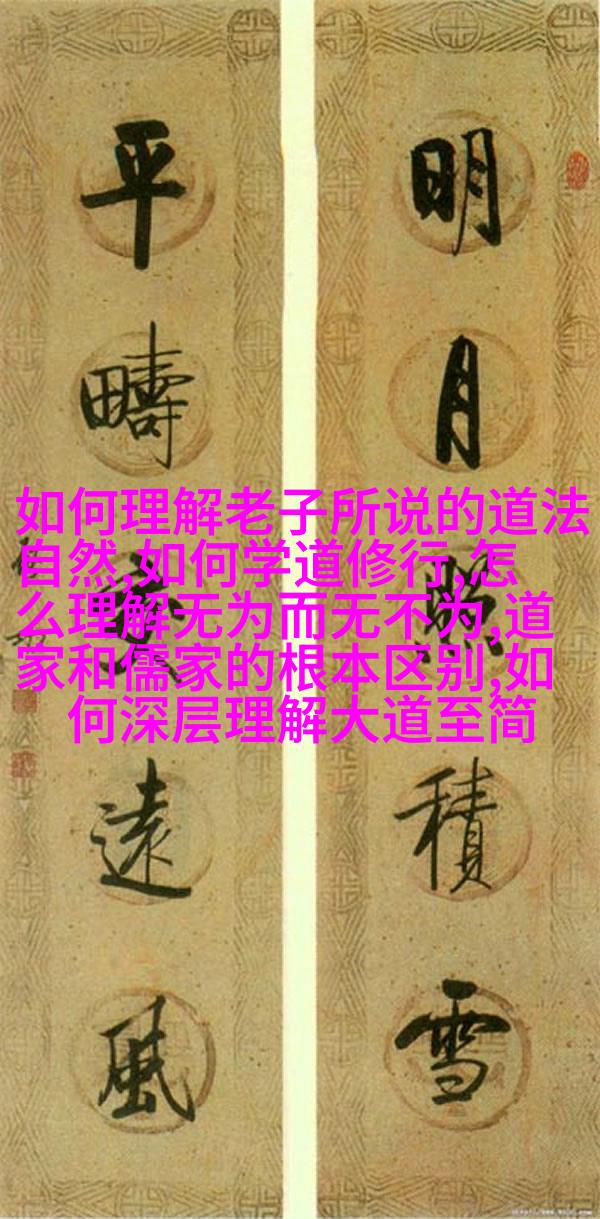 明月照積雪
平疇遠風
如何理解老子所说的道法
自然,如何学道修行,怎
么理解无为而无不为,道
家和儒家的根本区别,如
何深层理解大道至简